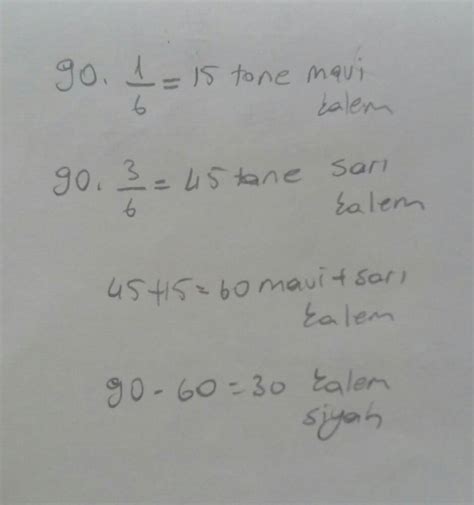 90 . 1/6 = 15 tane mavi
kalem
90 . 3/6 = 45 tane sarı
kalem
45+15=60 mavi+sarı
kalem
90-60=30 kalem
siyah